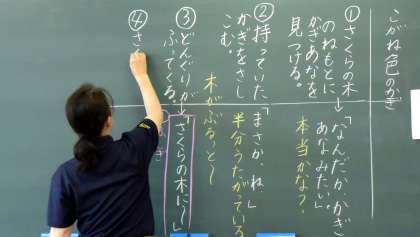 こがね色のかぎ
①さくらの木
のねもとに
かぎあなを
見つける。
「なんだか、かぎ
あなみたい」
本当かな？
②持っていた
かぎをさし
こむ。
「まさか、ね」
半分うたがている
木がぶるっと
③どんぐりが
ふってくる。
さくらの木に
④さ